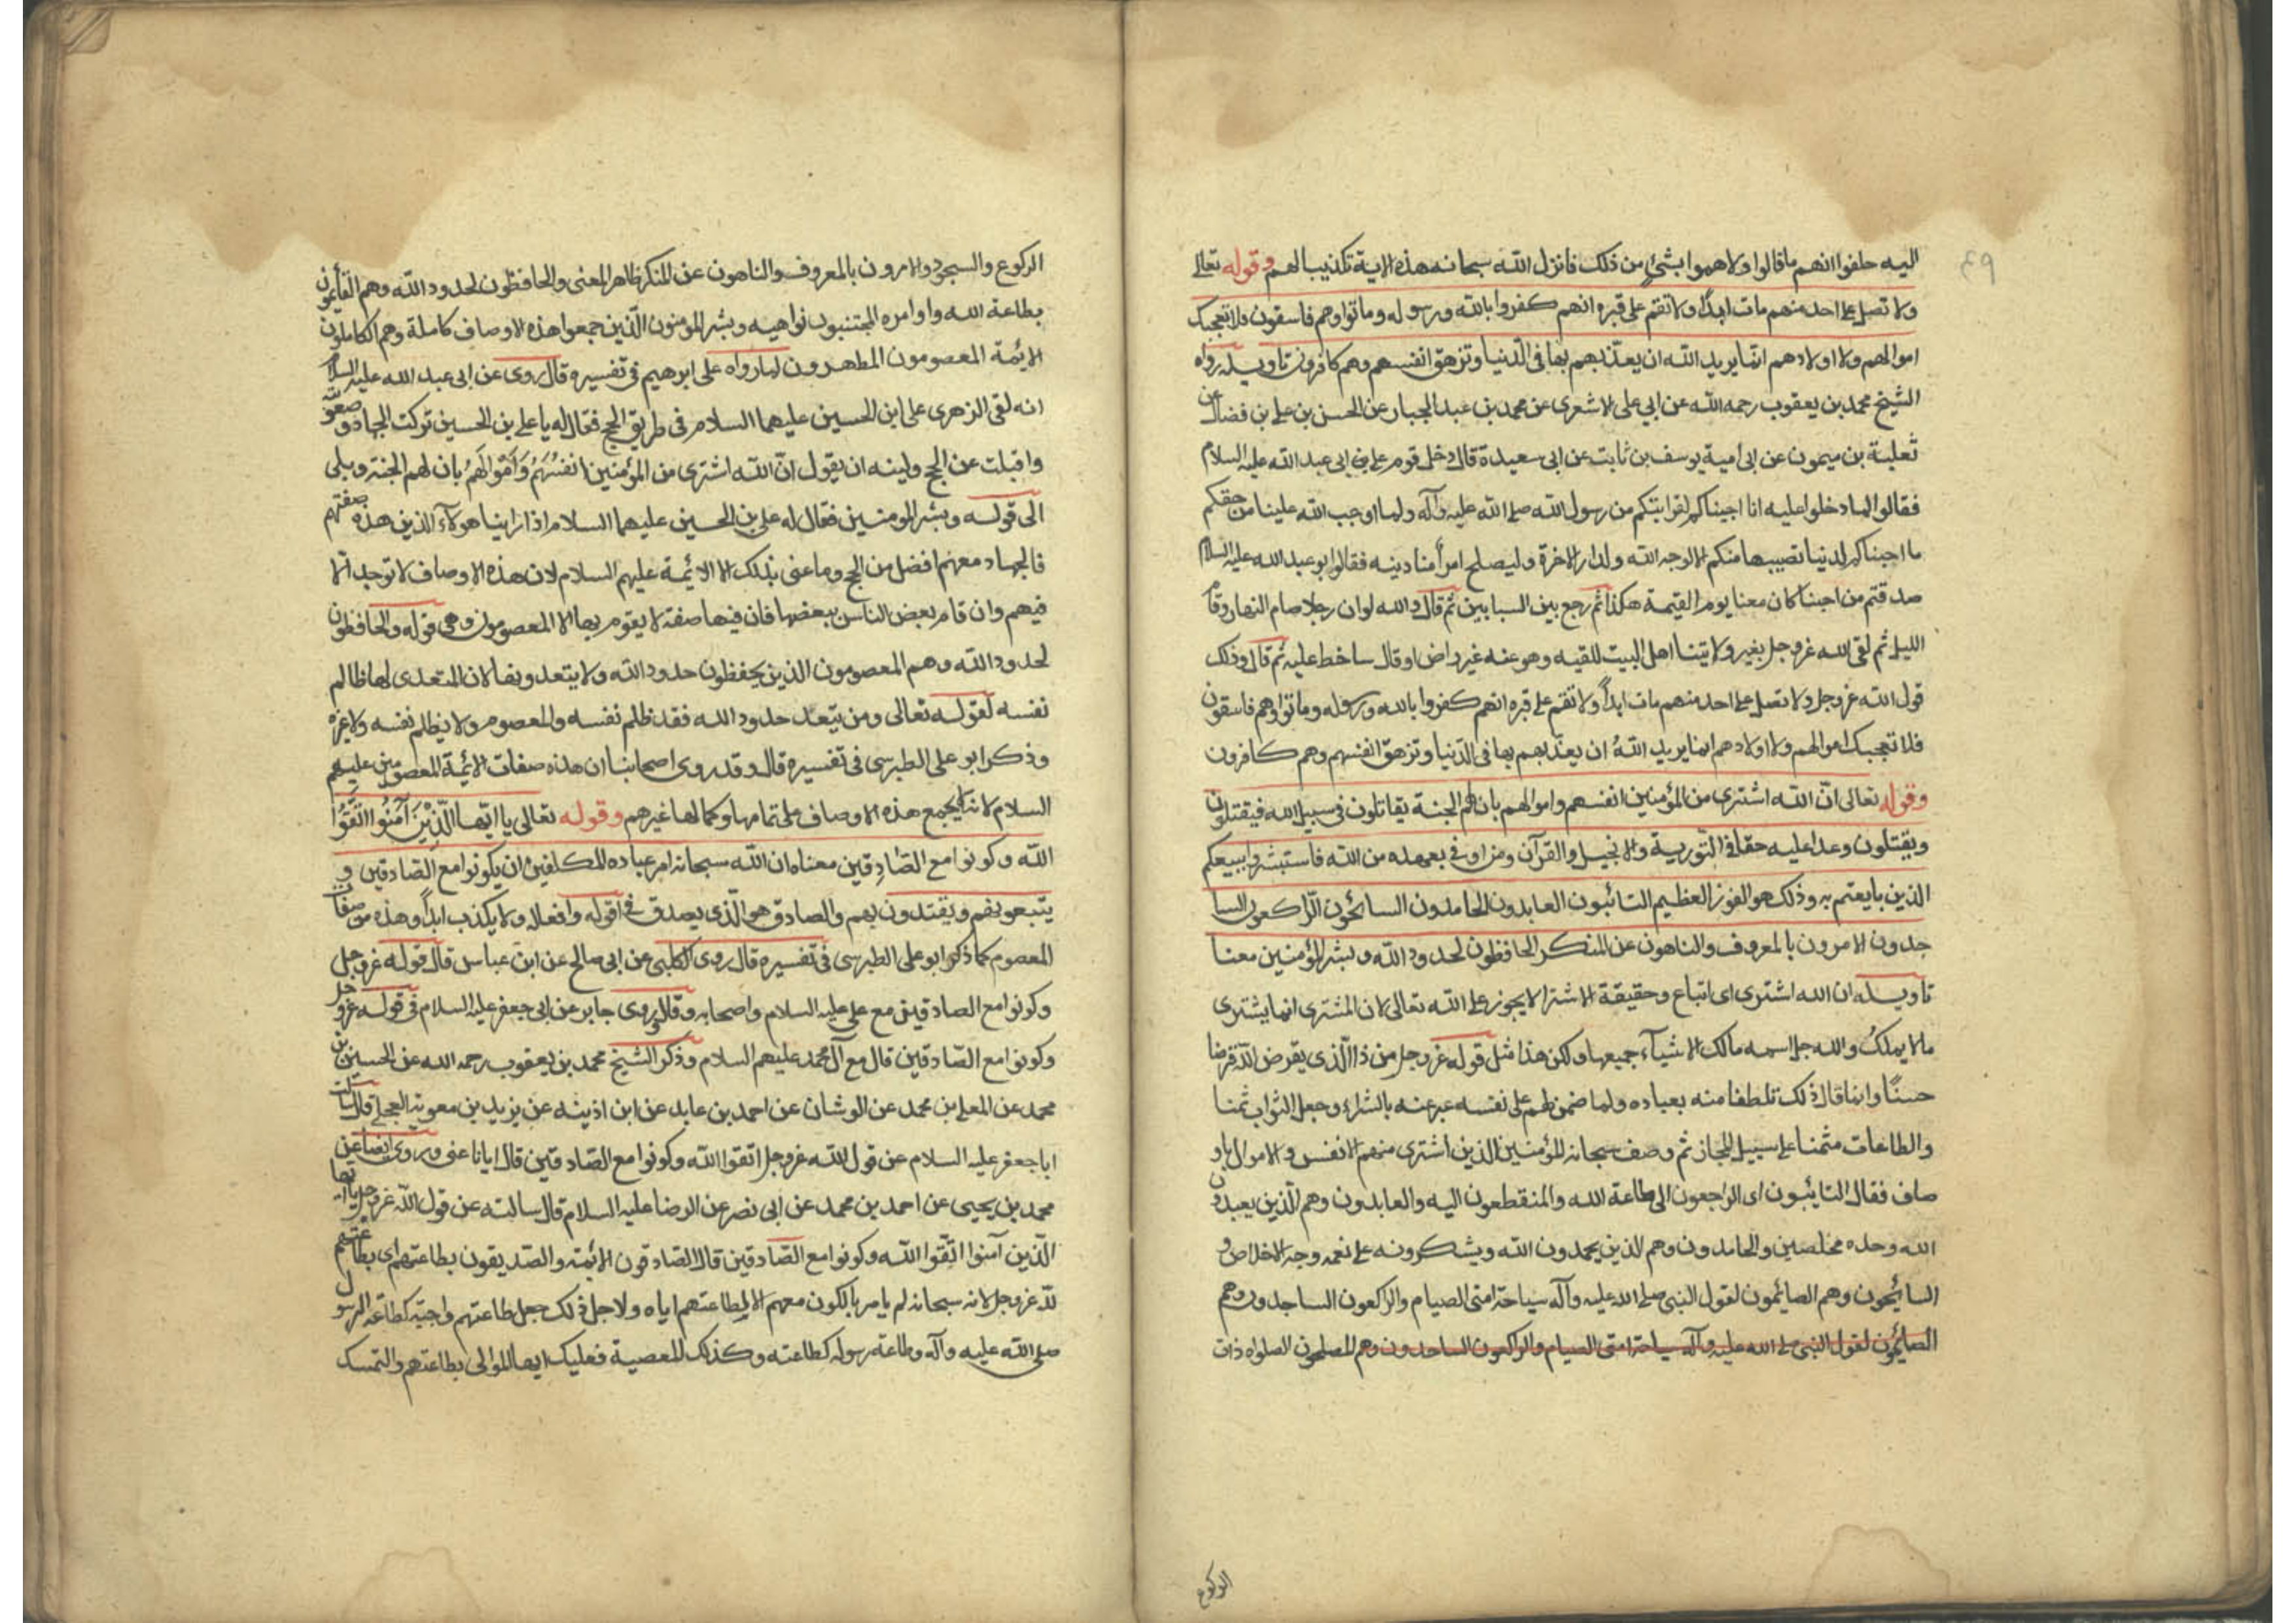 اليه حلفوا انهم ما قالوا ولا هموا بشئ من ذلك فانزل الله سبحانه هذه الاية تكذيبا لهم وقوله تعالى
ولا تصل على احد منهم مات ابدًا ولا تقم على قبره انهم كفروا بالله ورسوله وماتوا وهم فاسقون فلا تعجبك
اموالهم ولا اولادهم انما يريد الله ان يعذبهم بها فى الدنيا وتزهق انفسهم وهم كافرون تاويله رواه
الشيخ محمد بن يعقوب رحمه الله عن ابي على الاشعرى عن محمد بن عبد الجبار عن الحسن بن على بن فضال عن
ثعلبة بن ميمون عن ابى امية يوسف بن ثابت عن ابى سعيدة قال دخل قوم على ابى عبد الله عليه السلام
فقالوا لما دخلوا عليه انا احببناكم لقرابتكم من رسول الله صلى الله عليه وآله ولما اوجب الله علينا من حقكم
ما احببناكم لدنيا نصيبها منكم الا لوجه الله ولدار الاخرة وليصلح امرأ منا دينه فقالوا ابو عبد الله عليه السلام
صدقتم من احبنا كان معنا يوم القيمة هكذا ثم رجع بين السبابين ثم قال والله لو ان رجلا صام النهار وقام
الليل ثم لقى الله عز وجل بغير ولايتنا اهل البيت للقيه وهو عنه غير راض او قال ساخط عليه ثم قال وذلك
قول الله عز وجل ولا تصل على احد منهم مات ابدًا ولا تقم على قبره انهم كفروا بالله ورسوله وماتوا وهم فاسقون
فلا تعجبك اموالهم ولا اولادهم انما يريد اللهُ ان يعذبهم بها فى الدنيا وتزهق انفسهم وهم كافرون
وقوله تعالى انّ الله اشترى من المؤمنين انفسهم واموالهم بان لهم الجنة يقاتلون فى سبيل الله فيقتلون
ويقتلون وعدا عليه حقا فى التورية والانجيل والقرآن ومن اوفى بعهده من الله فاستبشروا ببيعكم
الذين بايعتم به وذلك هو الفوز العظيم التائبون العابدون الحامدون السائحون الراكعون السا
جدون الامرون بالمعروف والناهون عن المنكر الحافظون لحدود الله وبشر المؤمنين معنا
تاويله ان الله اشترى اى ابتاع وحقيقة الاشترا لا يجوز على الله تعالى لان المشترى انما يشترى
ما لا يملكُ والله جل اسمه مالك الاشيآء جميعها ولكن هذا مثل قوله عز وجل من ذا الذى يقرض الله قرضا
حسنًا وانما قال ذلك تلطفا منه بعباده ولما ضمن لهم على نفسه عبر عنه بالشراء وجعل الثواب ثمنا
والطاعات مثمنا على سبيل المجاز ثم وصف سبحانه المؤمنين الذين اشترى منهم الانفس والاموال باو
صاف فقال التائبون اى الراجعون الى طاعة الله والمنقطعون اليه والعابدون وهم الذين يعبدون
الله وحده مخلصين والحامدون وهم الذين يحمدون الله ويشكرونه على نعمه وجه الاخلاص و
السائحون وهم الصائمون لقول النبى صلى الله عليه وآله سياحة امتى الصيام والراكعون الساجدون وهم
الصائمون لقول النبى صلى الله عليه وآله سياحة امتى الصيام والراكعون الساجدون وهم المصلحون الصلواه ذات
الركوع
الركوع والسجود والامرون بالمعروف والناهون عن المنكر ظاهر المعنى والحافظون لحدود الله وهم القائمون
بطاعة الله واوامره المجتنبون نواهيه وبشر المؤمنون الذين جمعوا هذه الاوصاف كاملة وهم الكاملون
الائمة المعصومون المطهرون لما رواه على ابرهيم فى تفسيره قال روى عن ابى عبد الله عليه السلام
انه لقى الزهرى على ابن الحسين عليهما السلام فى طريق الحج فقال له يا على بن الحسين تركت الجهاد وصعوبته
واقبلت عن الحج ولينه ان يقول انّ الله اشترى من المؤمنين انفسَهُم وَاَموَالَهُم بان لهم الجنة وبلى
الى قوله وبشر المومنين فقال له على بن الحسين عليهما السلام اذا راينا هولآء الذين هذه صفتهم
فالجهاد معهم افضل من الحج وما عنى بذلك الا الائمة عليهم السلام لان هذه الاوصاف لا توجد الا
فيهم وان قام بعض الناس ببعضها فان فيها صفة لا يقوم بها الا المعصومون وهى قوله والحافظون
لحدود الله وهم المعصومون الذين يحفظون حدود الله ولا يتعدونها لان المتعدى لها ظالم
نفسه لقوله تعالى ومن يتعد حدود الله فقد ظلم نفسه والمعصوم لا يظلم نفسه ولا غيره
وذكر ابو على الطبرسى فى تفسيره قال وقد روى اصحابنا ان هذه صفات الائمة المعصومين عليهم
السلام لانه لا يجمع هذه الاوصاف على تمامها وكمالها غيرهم وقوله تعالى يا ايّها الّذينَ آمَنُوا اتَّقُوا
الله وكونوا مع الصّادِقين معناه ان الله سبحانه امر عباده المكلفين ان يكونوا مع الصادقين و
يتبعونهم ويقتدون بهم والصادق هو الّذى يصدق فى اقوله وافعاله ولا يكذب ابدًا وهذه من صفات
المعصوم كما ذكر ابو على الطبرسى فى تفسيره قال روى الكلبى عن ابى صالح عن ابن عباس قال قوله عز وجل
وكونوا مع الصادقين مع على عليه السلام واصحابه وقال روى جابر عن ابى جعفر عليه السلام فى قوله عز وجل
وكونوا مع الصّادقين قال مع آل محمد عليهم السلام وذكر الشيخ محمد بن يعقوب رحمه الله عن الحسين بن
محمد عن المعلى بن محمد عن الوشان عن احمد بن عابد عن ابن اذينه عن يزيد بن معوية العجلى قال سالت
ابا جعفر عليه السلام عن قول الله عز وجل اتقوا الله وكونوا مع الصّادقين قال ايانا عنى وروى ايضا عن
محمد بن يحيى عن احمد بن محمد عن ابى نصر عن الرضا عليه السلام قال سالته عن قول الله عز وجل يا ايها
الّذين آمنوا اتّقوا الله وكونوا مع الصّادقين قال الصادقون الائمة والصّديقون بطاعتهم اى بطاعتهم
لله عز وجل لانه سبحانه لم يامر بالكون معهم الا لطاعتهم اياه ولاجل ذلك جعل طاعتهم واجبة كطاعة الرسول
صلى الله عليه وآله وطاعة رسوله كطاعته وكذلك المعصية فعليك ايها الموالى بطاعتهم والتمسك